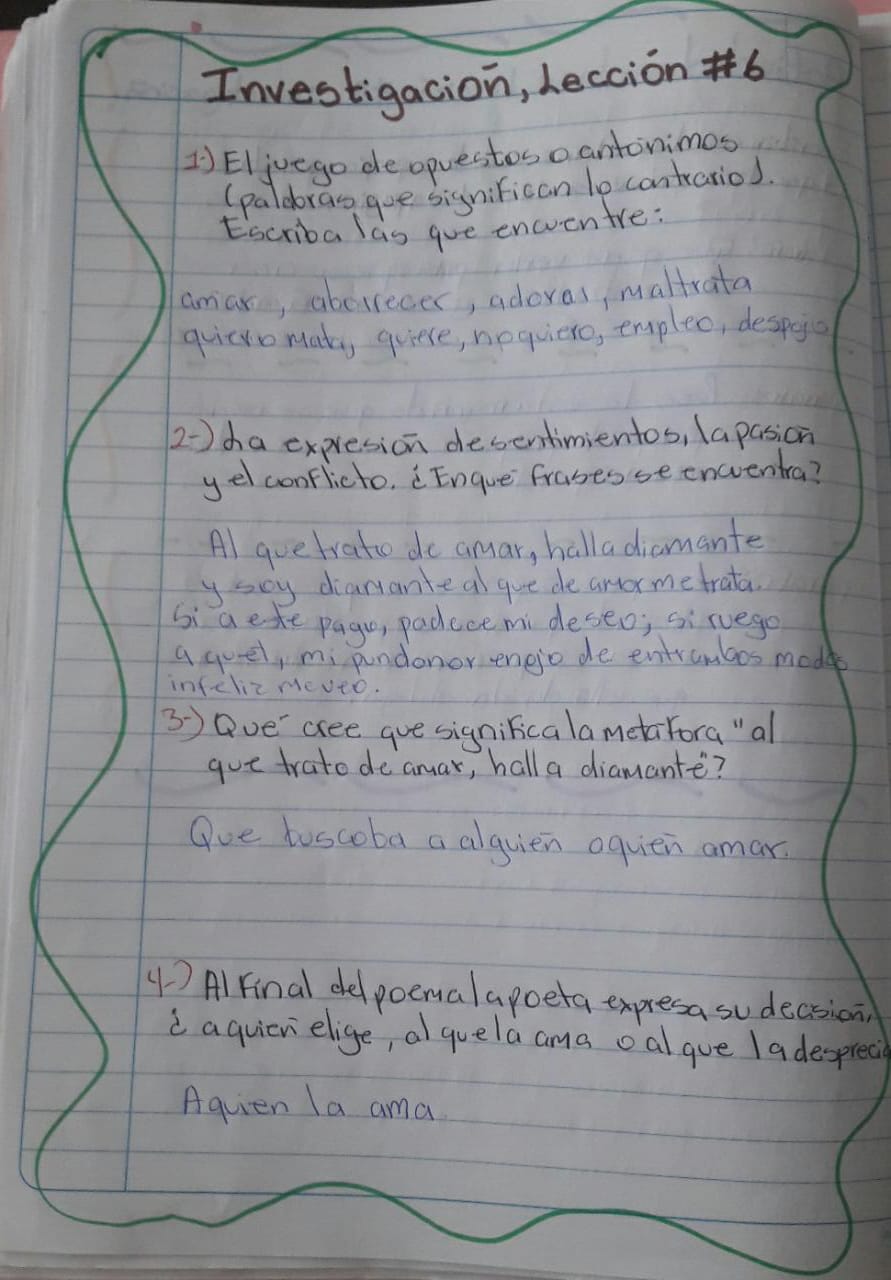 Investigación, Lección #6
1-) El juego de opuestos o antónimos
(palabras que significan lo contrario).
Escriba las que encuentre:
amar, aborrecer, adoras, maltrata
quiero mata, quiere, no quiero, empleo, despojo
2-) La expresión de sentimientos, la pasión
y el conflicto. ¿En qué frases se encuentra?
Al que trato de amar, halla diamante
y soy diamante al que de amor me trata.
Si a este pago, padece mi deseo; si ruego
a quel, mi pundonor enojo de entrambos modos
infeliz me veo.
3-) Qué cree que significa la metafora "al
que trato de amar, halla diamante"?
Que buscaba a alguien a quien amar.
4-) Al Final del poema la poeta expresa su decisión,
¿a quien elige, al que la ama o al que la desprecia
A quien la ama